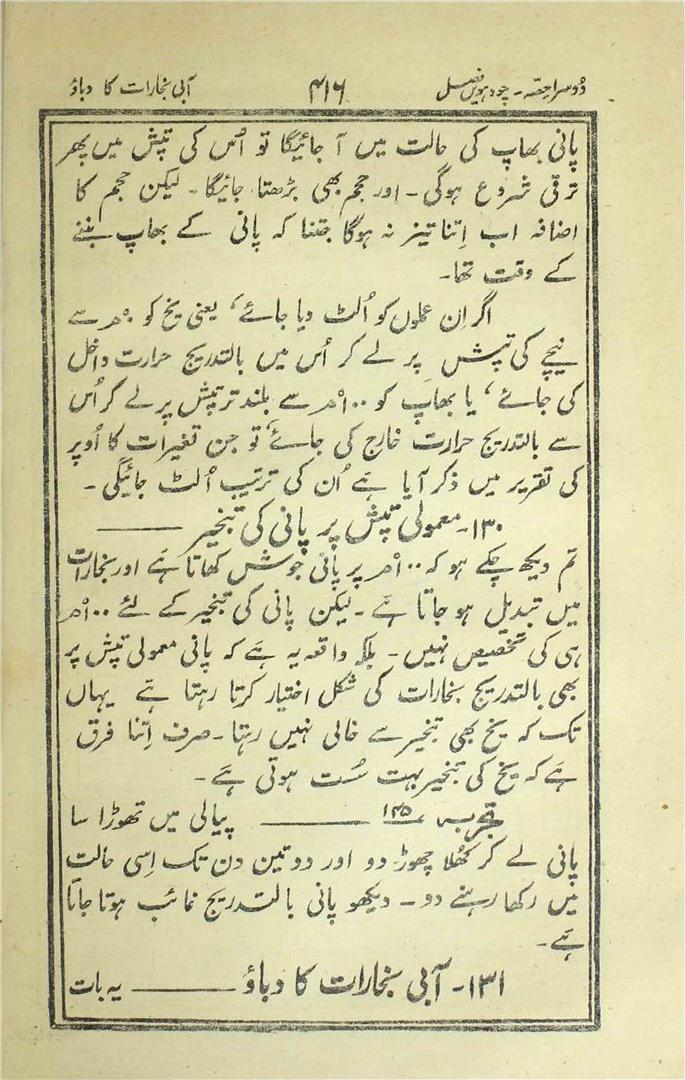 دُوسرا حصّہ - چودہویں فصل ۴۱۶ آبی بخارات کا دباؤ
پانی بھاپ کی حالت میں آ جائیگا تو اُس کی تپش میں پھر
ترقی شروع ہوگی - اور حجم بھی بڑھتا جائیگا - لیکن حجم کا
اضافہ اب اِتنا تیز نہ ہوگا جتنا کہ پانی کے بھاپ بننے
کے وقت تھا -
اگر اِن عملوں کو اُلٹ دیا جائے ‘ یعنی یخ کو ۰ْ م سے
نیچے کی تپش پر لے کر اُس میں بالتدریج حرارت داخل
کی جائے ‘ یا بھاپ کو ۱۰۰ْ م سے بلند تر تپش پر لے کر اُس
سے بالتدریج حرارت خارج کی جائے تو جن تغیرات کا اُوپر
کی تقریر میں ذکر آیا ہے اُن کی ترتیب اُلٹ جائیگی -
۱۳۰ - معمولی تپش پر پانی کی تبخیر ———
تم دیکھ چکے ہو کہ ۱۰۰ْ م پر پانی جوش کھاتا ہے اور بخارات
میں تبدیل ہو جاتا ہے - لیکن پانی کی تبخیر کے لئے ۱۰۰ْ م
ہی کی تخصیص نہیں - بلکہ واقعہ یہ ہے کہ پانی معمولی تپش پر
بھی بالتدریج بخارات کی شکل اختیار کرتا رہتا ہے یہاں
تک کہ یخ بھی تبخیر سے خالی نہیں رہتا - صرف اِتنا فرق
ہے کہ یخ کی تبخیر بہت سُست ہوتی ہے -
تجربہ ۱۴۵ ——— پیالی میں تھوڑا سا
پانی لے کر کھُلا چھوڑ دو اور دو تین دن تک اِسی حالت
میں رکھا رہنے دو - دیکھو پانی بالتدریج غائب ہوتا جاتا
ہے -
۱۳۱ - آبی بخارات کا دباؤ ——— یہ بات